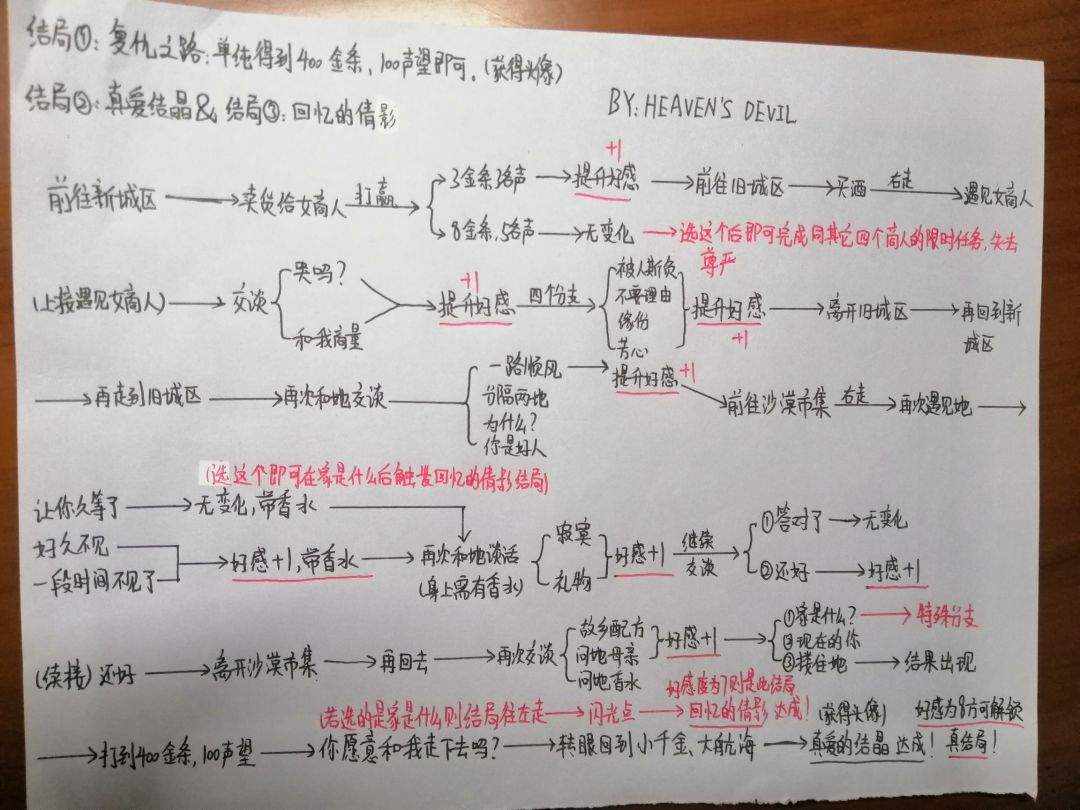 结局①：复仇之路：单纯得到400金条，100声望即可。(获得头像)
结局②：真爱结晶& 结局③：回忆的倩影
BY：HEAVEN'S DEVIL
+1
3金条3名声 提升好感
前往新城区 卖货给女商人 打赢 前往旧城区 买酒 右走 遇见女商人
8金条，5名声 无变化 选这个后即可完成同其它四个商人的限时任务，失去
尊严
哭吗？ +1 被人欺负
(上接遇见女商人) 交谈 提升好感 四份支 不要理由 提升好感 离开旧城区 再回到新
和我商量 缘份 +1 城区
苦心
一路顺风 提升好感 +1
再走到旧城区 再次和她交谈 分隔两地 前往沙漠市集 右走 再次遇见她
为什么？
你是好人
(选这个即可在家是什么后触发回忆的倩影结局)
让你久等了 无变化，带香水 寂寞 ①答对了 无变化
好久不见 好感+1，带香水 再次和她谈话 好感+1 继续
一段时间不见了 (身上需有香水) 礼物 交谈 ②还好 好感+1
故乡配方 ①家是什么？ 特殊分支
(续接) 还好 离开沙漠市集 再回去 再次交谈 问她母亲 好感+1 ②现在的你
问她香水 ③搂住她 结果出现
好感度为7则是此结局
(若选的是家是什么则结局往左走 闪光点 回忆的倩影 达成！ (获得头像) 好感为8方可解锁
打到400金条，100声望 你愿意和我走下去吗？ 转眼回到小千金、大航海 真爱的结晶 达成！ 真结局！